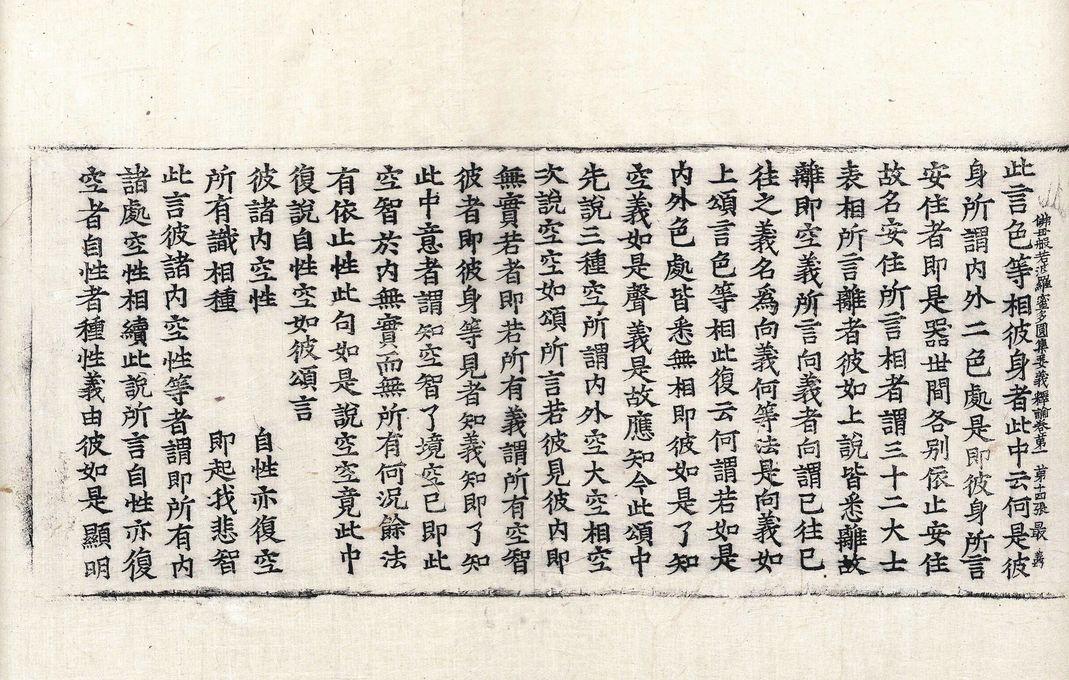 佛母般若波羅蜜多圓集要義釋論卷第一 第十四張 最
此言色等相彼身者此中云何是彼
身所謂内外二色處是即彼身所言
安住者即是器世間各別依止安住
故名安住所言相者謂三十二大士
表相所言離者彼如上說皆悉離故
離即空義所言向義者向謂已往已
往之義名爲向義何等法是向義如
上頌言色等相此復云何謂若如是
内外色處皆悉無相即彼如是了知
空義如是聲義是故應知今此頌中
先說三種空所謂内外空大空相空
次說空空如頌所言若彼見彼内即
無實若者即若所有義謂所有空智
彼者即彼身等見者知義知即了知
此中意者謂知空智了境空已即此
空智於内無實而無所有何況餘法
有依止性此句如是說空空竟此中
復說自性空如彼頌言
彼諸内空性 自性亦復空
所有識相種 即起我悲智
此言彼諸内空性等者謂即所有内
諸處空性相續此說所言自性亦復
空者自性者種性義由彼如是顯明